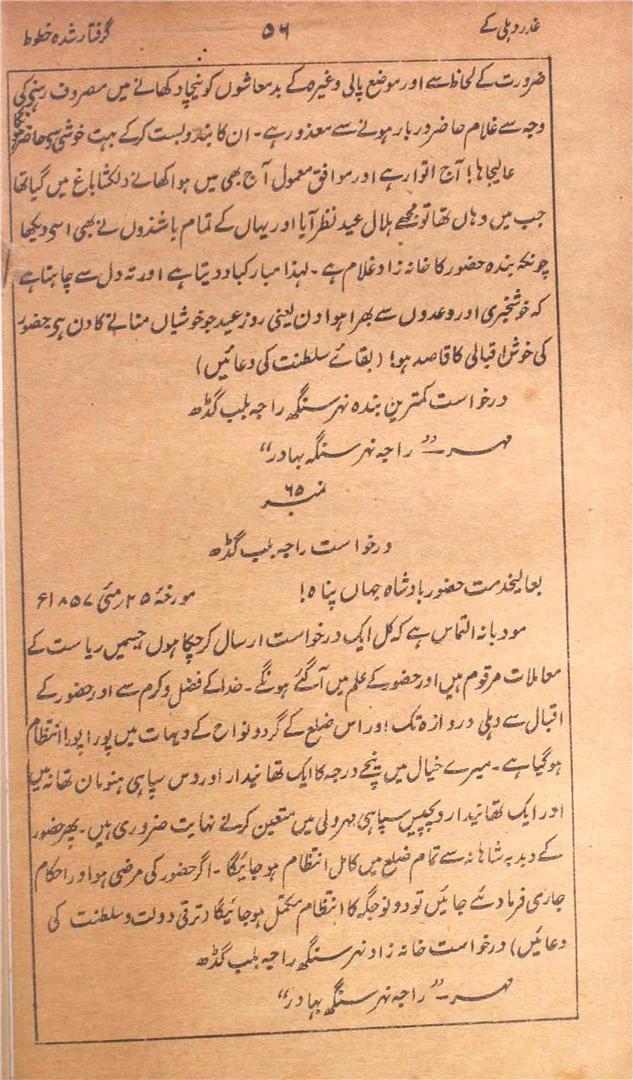 غدر دہلی کے ۵۶ گرفتار شدہ خطوط
ضرورت کے لحاظ سے اور موضع پالی وغیرہ کے بدمعاشوں کو نیچا دکھانے میں مصروف رہنے کی
وجہ سے غلام حاضر دربار ہونے سے معذور ہے۔ ان کا بندوبست کرکے بہت خوشی سے حاضر ہوگا
عالیجاہا! آج اتوار ہے اور موافق معمول آج بھی میں ہوا کھانے دلکشا باغ میں گیا تھا
جب میں وہاں تھا تو مجھے ہلال عید نظر آیا اور یہاں کے تمام باشندوں نے بھی اسی دیکھا
چونکہ بندہ حضور کا خانہ زاد غلام ہے۔ لہذا مبارکباد دیتا ہے اور تہ دل سے چاہتا ہے
کہ خوشخبری اور وعدوں سے بھرا ہوا دن یعنی روز عید جو خوشیاں منانے کا دن ہی حضور
کی خوش اقبالی کا قاصد ہو! (بقائے سلطنت کی دعائیں)
درخواست کمترین بندہ نہر سنگھ راجہ بلب گڈھ
مہر۔ ”راجہ نہر سنگہ بہادر“
نمبر ۶۵
درخواست راجہ بلب گڈھ
بعالیخدمت حضور بادشاہ جہاں پناہ! مورخۂ ۲۵ مئی ۱۸۵۷ء
مودبانہ التماس ہے کہ کل ایک درخواست ارسال کرچکا ہوں جسمیں ریاست کے
معاملات مرقوم ہیں اور حضور کے علم میں آگئے ہونگے۔ خدا کے فضل و کرم سے اور حضور کے
اقبال سے دہلی دروازہ تک اور اس ضلع کے گرد و نواح کے دیہات میں پورا پورا انتظام
ہوگیا ہے۔ میرے خیال میں نیچے درجہ کا ایک تھانیدار اور دس سپاہی ہنومان تھانہ میں
اور ایک تھانیدار و پچیس سپاہی مہرولی میں متعین کرنے نہایت ضروری ہیں۔ پھر حضور
کے دبدبہ شاہانہ سے تمام ضلع میں کامل انتظام ہوجائیگا۔ اگر حضور کی مرضی ہو اور احکام
جاری فرما دئے جائیں تو دونو جگہ کا انتظام مکمل ہوجائیگا (ترقی دولت و سلطنت کی
دعائیں) درخواست خانہ زاد نہر سنگھ راجہ بلب گڈھ
مہر۔ ”راجہ نہر سنگھ بہادر“